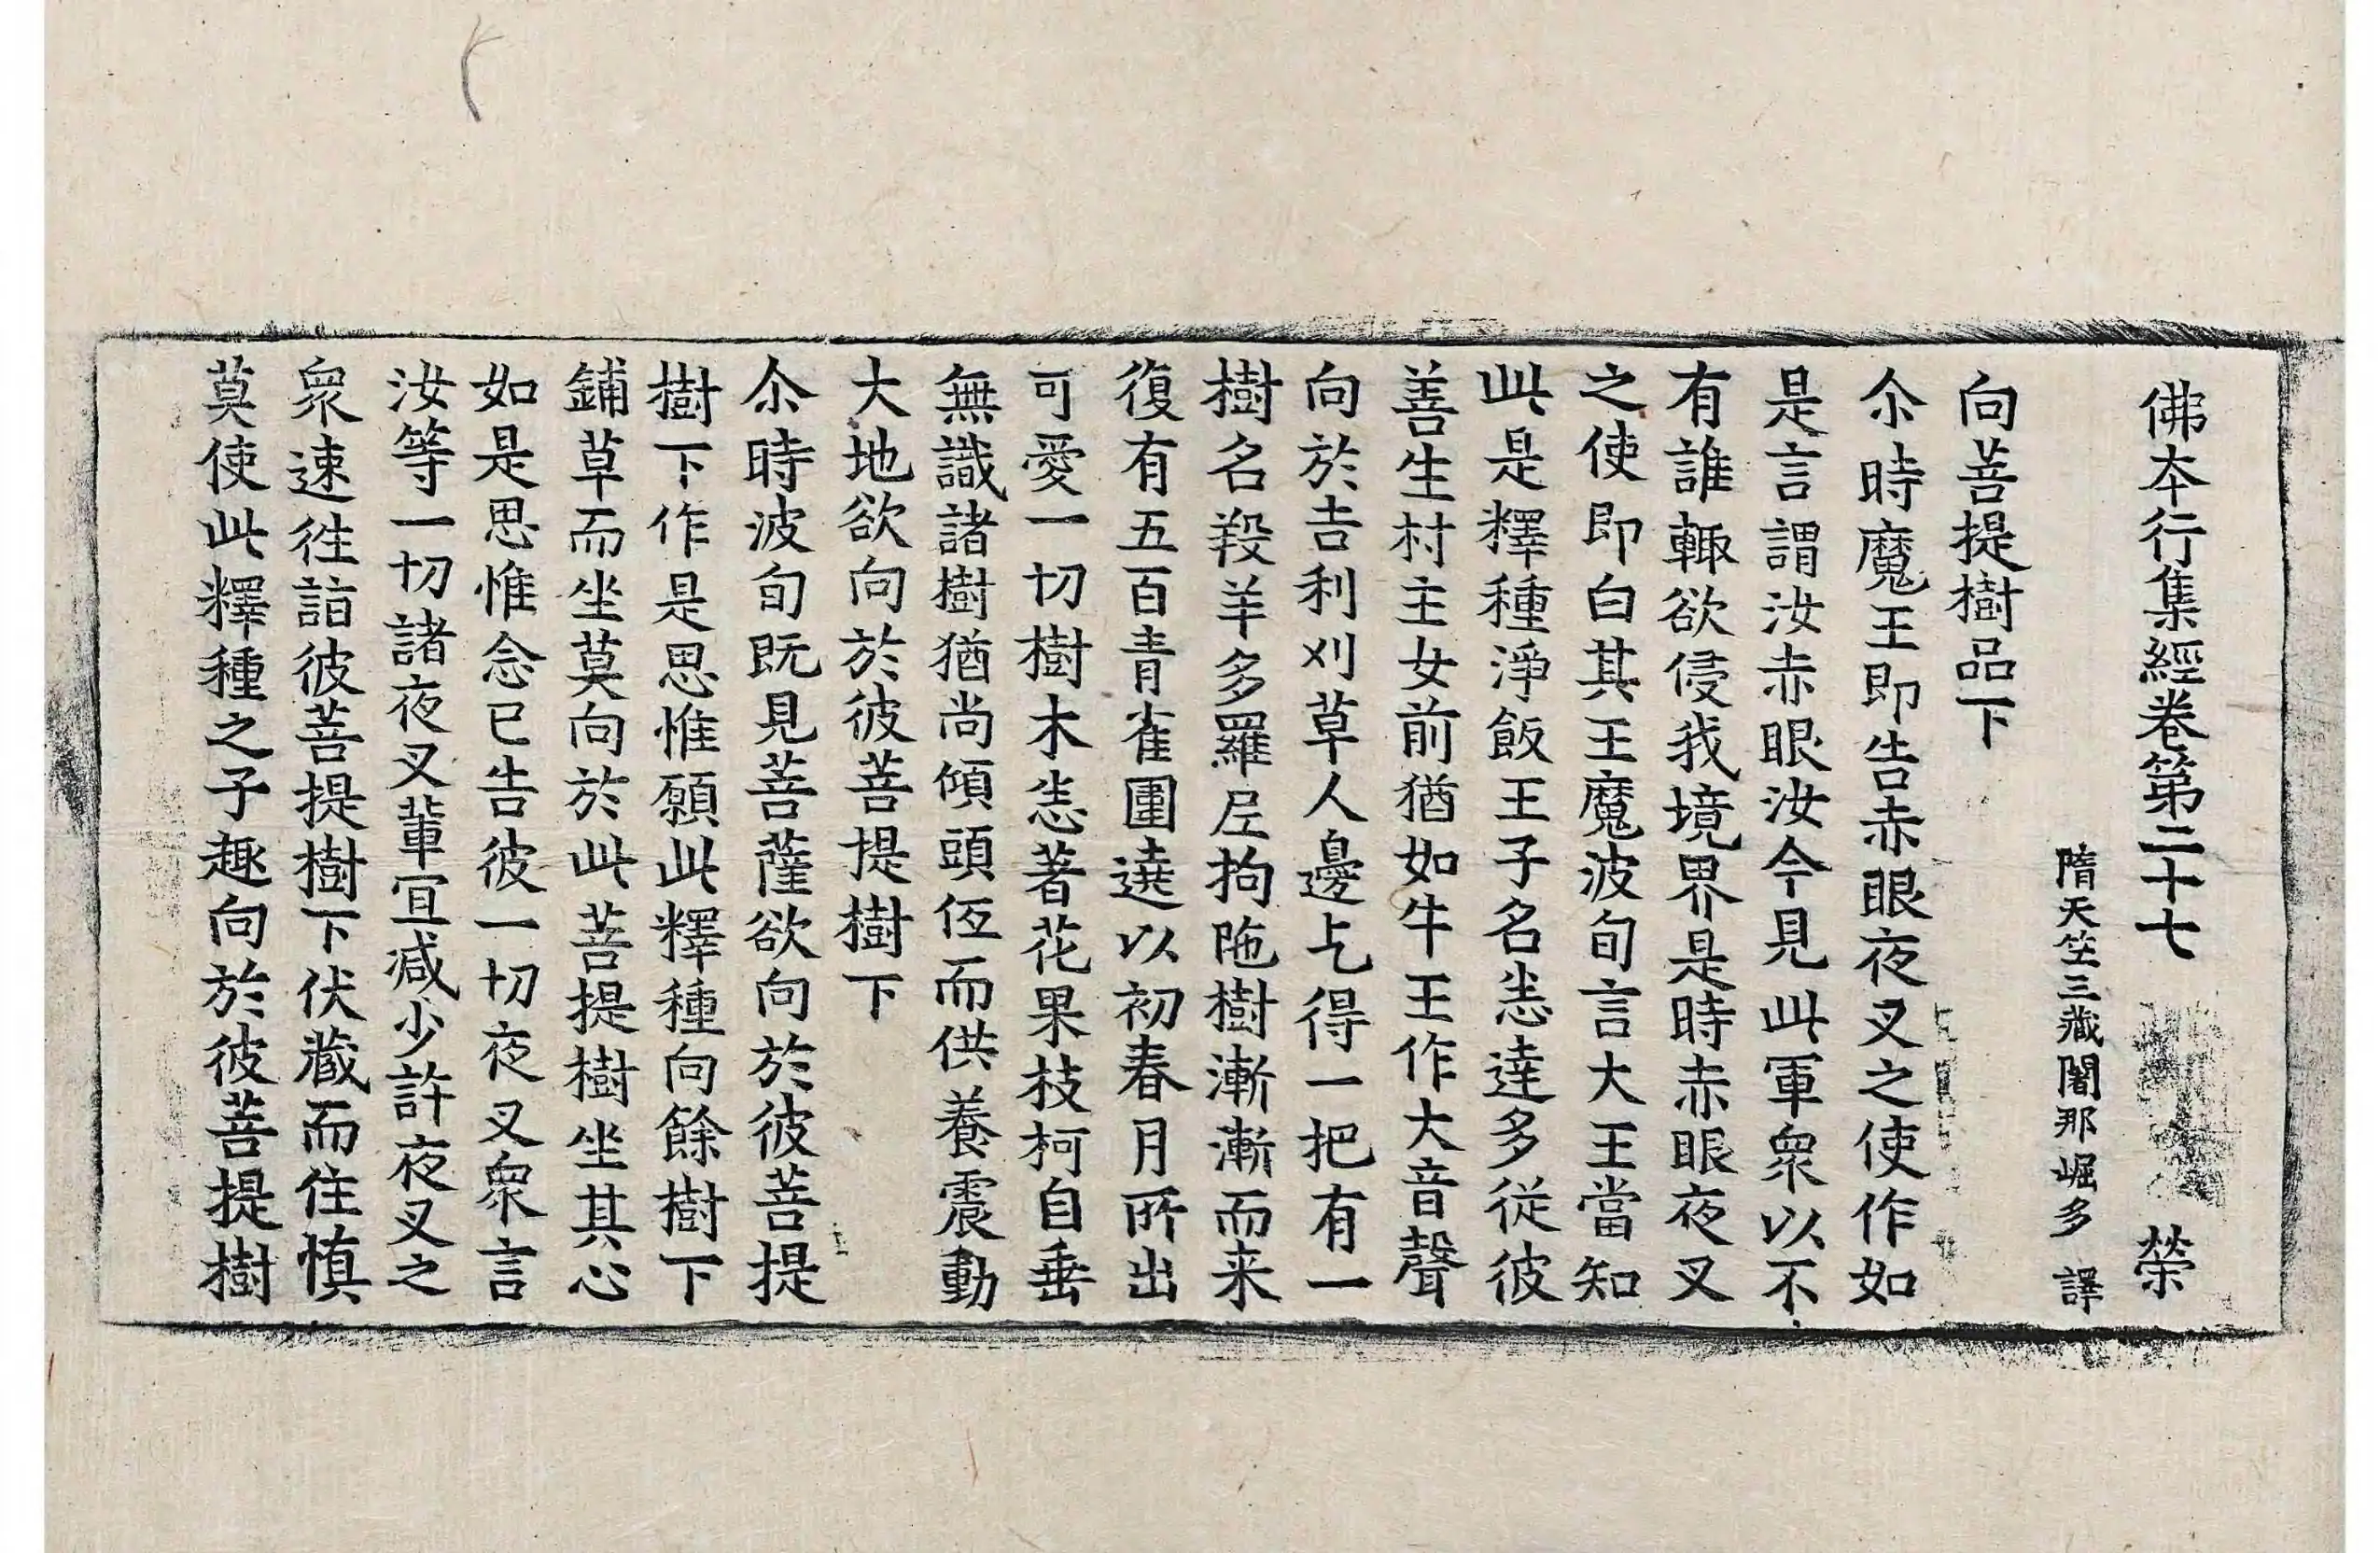 佛本行集經卷第二十七 榮
隋天竺三藏闍那崛多 譯
向菩提樹品下
尒時魔王即告赤眼夜叉之使作如
是言謂汝赤眼汝今見此軍衆以不
有誰輙欲侵我境界是時赤眼夜叉
之使即白其王魔波旬言大王當知
此是釋種淨飯王子名悉達多從彼
善生村主女前猶如牛王作大音聲
向於吉利刈草人邊乞得一把有一
樹名羖羊多羅𡰱拘陁樹漸漸而来
復有五百青雀圍遶以初春月所出
可愛一切樹木悉著花果枝柯自垂
無識諸樹猶尚傾頭伍而供養震動
大地欲向於彼菩提樹下
尒時波旬既見菩薩欲向於彼菩提
樹下作是思惟願此釋種向餘樹下
鋪草而坐莫向於此菩提樹坐其心
如是思惟念已告彼一切夜叉衆言
汝等一切諸夜叉輩冝減少許夜叉之
衆速徃詣彼菩提樹下伏藏而住慎
莫使此釋種之子趣向於彼菩提樹